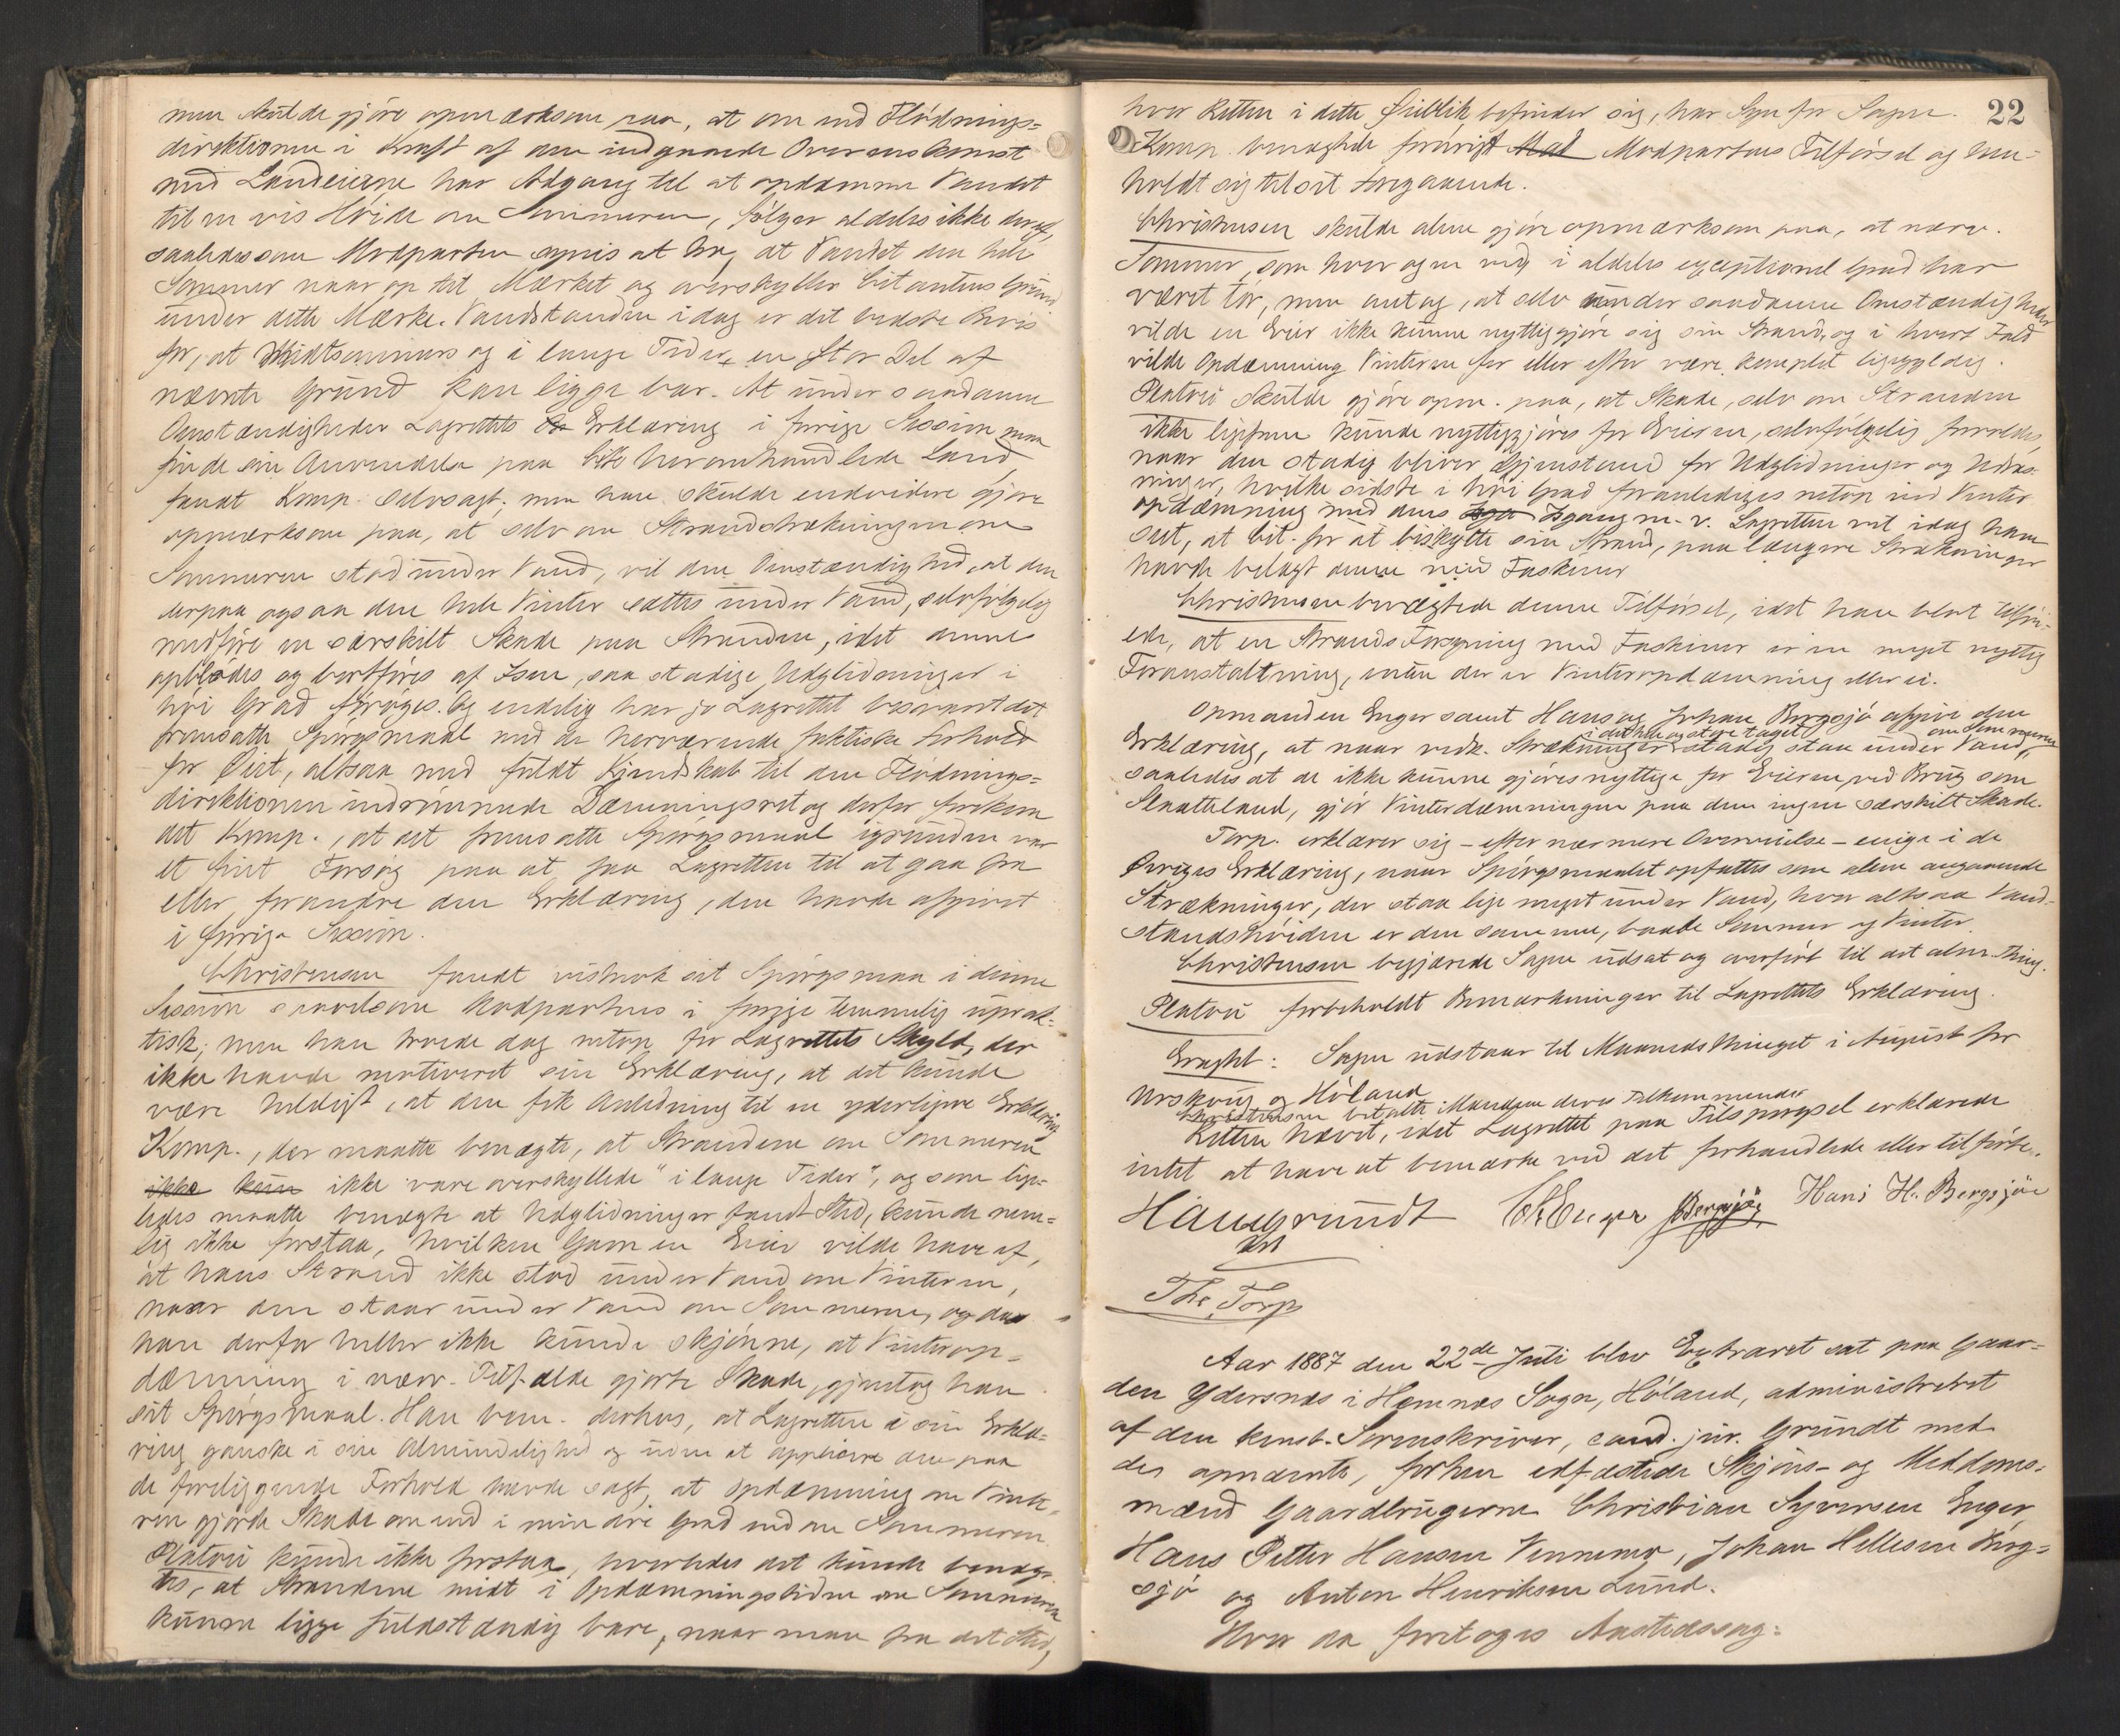 men skulde gjøre opmærksom paa, at om end Flødnings=
direktionen i Kraft af den indgaaede Overenskomst
med Landeierne har Adgang til at opdæmme Vandet
til en vis Høide om Sommeren, følger aldeles ikke deraf,
saaledes som Modparten synes at tro, at Vandet den hele
Sommer naar op til Mærket og overskyller Citantens Grund
under dette Mærke. Vandstanden idag er det bedste Bevis
for, at Midtsommers og i lange Tider en stor Del af
nævnte Grund kan ligge bar. At under saadanne
Omstændigheder Lagrettets Erklæring i forrige Session maa
finde sin Anvendelse paa heromhandlede Land,
fandt Komp. selvsagt; men han skulde endvidere gjøre
opmærksom paa, at selv om Strandstrækningerne om
Sommeren stod under Vand, vil den Omstændighed, at den
derpaa ogsaa den hele Vinter sættes under Vand, selvfølgelig
medføre en særskilt Skade paa Stranden, idet denne
opblødes og bortføres af Isen, saa stadige Udglidninger i
høi Grad forøges. Og endelig har jo Lagrettet besvaret det
fremsatte Spørgsmaal med de herværende faktiske Forhold
for Øiet, altsaa med fuldt Kjendskab til den Flødnings=
direktionen indrømmede Dæmningsret og derfor forekom
det Komp., at det fremsatte Spørgsmaal igrunden var
et fint Forsøg paa at faa Lagretten til at gaa fra
eller forandre den Erklæring, den havde afgivet
i forrige Session.
Christensen fandt vistnok sit Spørgsmaal i denne
Session saavelsom Modpartens i forrige temmelig uprak=
tisk; men han troede dog netop for Lagrettets Skyld, der
ikke havde motiveret sin Erklæring, at det kunde
være heldigt, at den fik Anledning til en yderligere Erklæring
Komp., der maatte benægte, at Strandene om Sommeren
ikke kun ikke vare overskyllede "i lange Tider", og som lige=
ledes maatte benægte at Udglidninger fandt Sted, kunde nem=
lig ikke forstaa, hvilken Gavn en Eier vilde have af,
at hans Strand ikke stod under Vand om Vinteren,
naar den staar under Vand om Sommeren, og da
han derfor heller ikke kunde skjønne, at Vinterop=
dæmning i nærv. Tilfælde gjorte Skade, gjentog han
sit Spørgsmaal. Han bem. derhos, at Lagretten i sin Erklæ=
ring ganske i sin Almindelighed og uden at applicere den paa
de foreliggende Forhold havde sagt, at Opdæmning om Vinte=
ren gjorde Skade om end i mindre Grad end om Sommeren.
Platou kunde ikke forstaa, hvorledes det kunde benæg=
tes, at Strandene midt i Opdæmningstiden om Sommeren
kunne ligge fuldstændig bare, naar man fra det Sted,
22
hvor Retten i dette Øieblik befinder sig, har Syn for Sagn.
Komp. benægtede forøvrigt Mod Modpartens Tilførsel og hen=
holdt sig til sit Foregaaende.
Christensen skulde alene gjøre opmærksom paa, at nærv.
Sommer, som hver og en ved, i aldeles exceptionel Grad har
været tør, men antog, at selv under saadanne Omstændigheder
vilde en Eier ikke kunne nyttiggjøre sig sin Strand, og i hvert Fald
vilde Opdæmning Vinteren før eller efter være komplet ligegyldig.
Platou skulde gjøre opm. paa, at Skade, selv om Stranden
ikke ligefrem kunde nyttiggjøres for Eieren, selvfølgelig forvoldes,
naar den stadig bliver Gjenstand for Udglidninger og Udras=
ninger, hvilke sidste i høi Grad foranlediges netop ved Vinter
opdæmning med dens Isgang m. v. Lagretten vil idag have
seet, at Cit. for at beskytte sin Strand, paa længere Strækninger
havde belagt denne med Faskiner
Christensen benægtede denne Tilførsel, idet han blot tilføi=
ede, at en Strands Forbygning med Faskiner er en meget nyttig
Foranstaltning, enten der er Vinteropdæmning eller ei.
Opmanden Enger samt Hans og Johan Bergsjø afgive den
Erklæring, at naar vedk. Strækninger i det hele og store taget stadig staa under Vand om Sommeren,
saaledes at de ikke kunne gjøres nyttige for Eieren ved Brug som
Slaatteland, gjør Vinterdæmningen paa dem ingen særskilt Skade.
Torp. erklærer sig – efter nærmere Overveielse – enig i de
Øvriges Erklæring, naar Spørgsmaalet opfattes som alene angaaende
Strækninger, der staa lige meget under Vand, hvor altsaa Vand=
standshøiden er den samme, baade Sommer og Vinter.
Christensen begjærede Sagen udsat og overført til det alm. Thing.
Platou forbeholdt Bemærkninger til Lagrettets Erklæring.
Eragtet: Sagen udstaar til Maanedsthinget i August for
Urskoug og Høland
Christensen betalte Mændene deres Tilkommende
Retten hævet, idet Lagrettet paa Tilspørgsel erklærede
intet at have at bemærke ved det forhandlede eller tilførte.
Haugrundt Chr Enger JBergsjø Hans H. Bergsjøe
Th. Torp
Aar 1887 den 22de Juli blev Extraret sat paa Gaar=
den Ydersnæs i Hemnæs Sogn, Høland, administreret
af den const. Sorenskriver, cand. jur. Grundt med
de opnævnte, forhen edfæstede Skjøns- og Meddoms=
mænd Gaardbrugerne Christian Syversen Enger,
Hans Petter Hansen Vennemo, Johan Hellesen Berg=
sjø og Anton Henriksen Lund.
Hvor da foretoges Aastedssag: